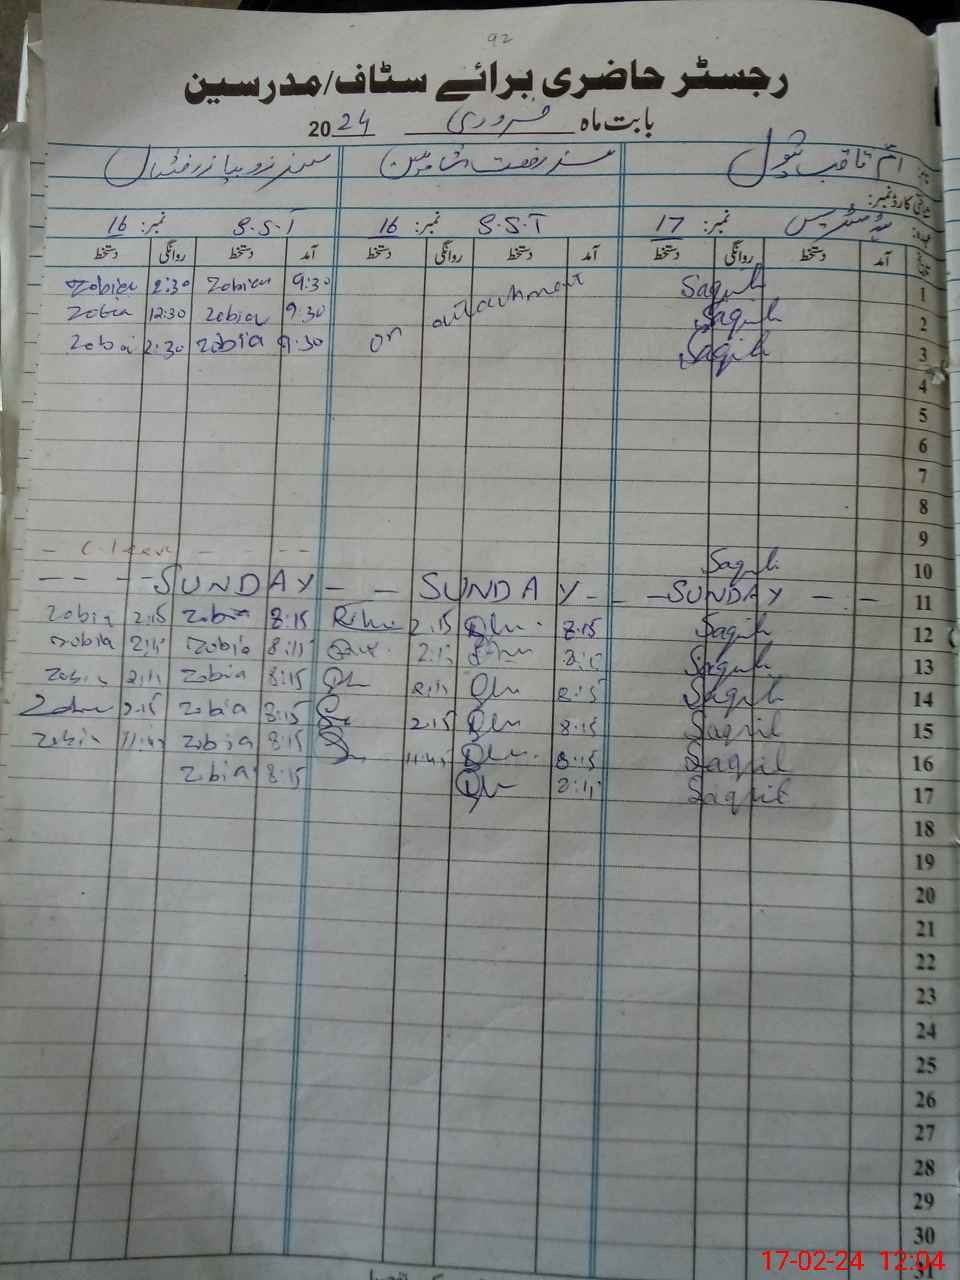 92
رجسٹر حاضری برائے سٹاف/مدرسین
بابت ماہ فروری 2024
نام:
شناختی کارڈ نمبر:
عہدہ: نمبر: 17 S.S.T نمبر: 16 S.S.T نمبر: 16
تاریخ آمد دستخط روانگی دستخط آمد دستخط روانگی دستخط آمد دستخط روانگی دستخط
Zobia 2:30 Zobia 9:30 on attachment Saqib 1
Zobia 12:30 Zobia 9:30 Saqib 2
Zobia 2:30 Zobia 9:30 Saqib 3
4
5
6
7
8
9
Saqib 10
SUNDAY SUNDAY SUNDAY 11
Zobia 2:15 Zobia 8:15 2:15 8:15 Saqib 12
Zobia 2:15 Zobia 8:15 2:15 8:15 Saqib 13
Zobia 2:15 Zobia 8:15 2:15 8:15 Saqib 14
2:15 Zobia 8:15 2:15 8:15 Saqib 15
Zobia 11:45 Zobia 8:15 11:45 8:15 Saqib 16
Zobia 8:15 8:15 Saqib 17
18
19
20
21
22
23
24
25
26
27
28
29
30
31
17-02-24 12:04